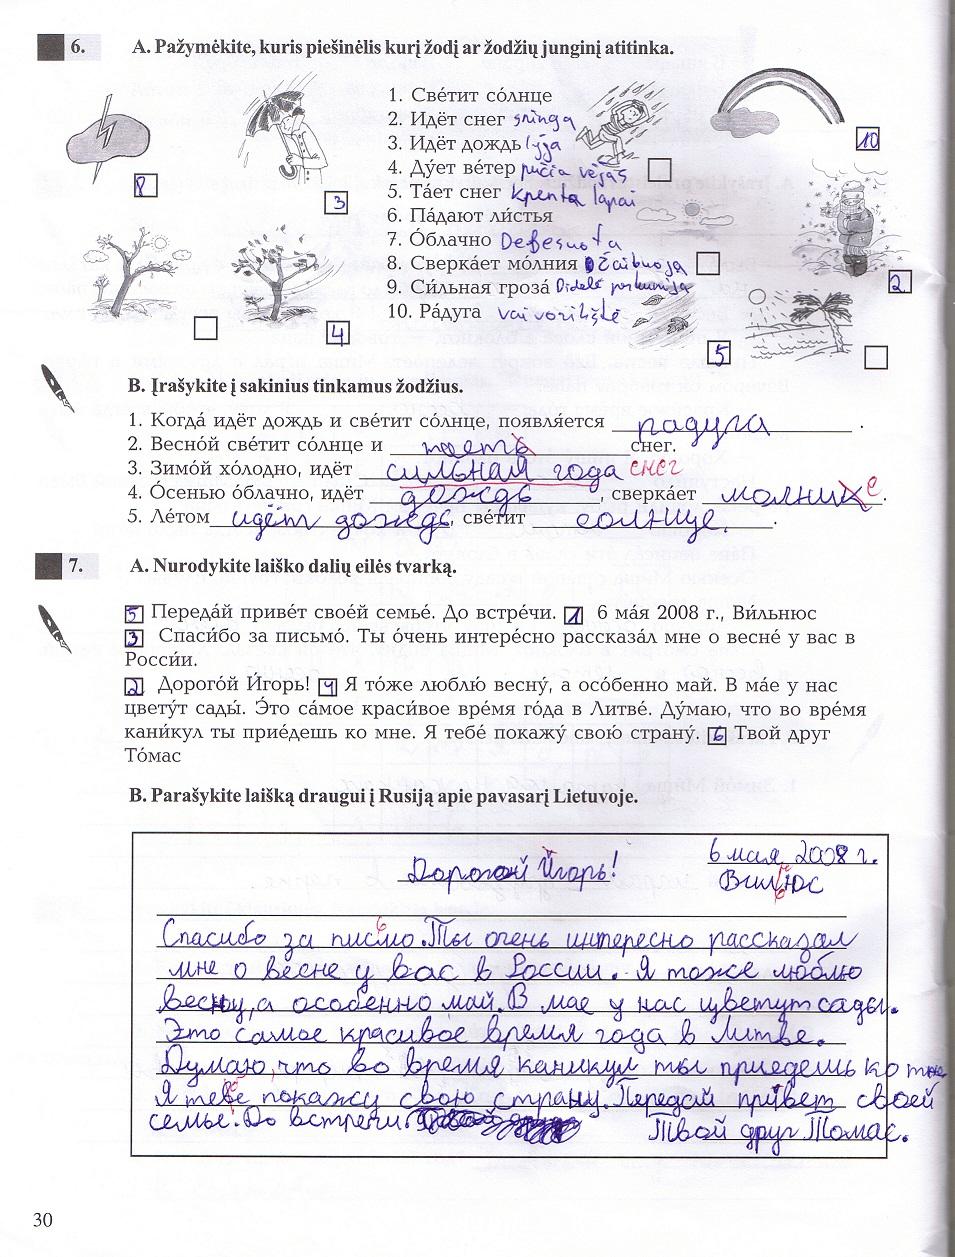 6. A. Pažymėkite, kuris piešinėlis kurį žodį ar žodžių junginį atitinka.
1. Све́тит со́лнце
2. Идёт снег sninga
3. Идёт дождь lyja
4. Ду́ет ве́тер pučia vėjas
5. Та́ет снег krenta lapai
6. Па́дают ли́стья
7. О́блачно Debesuota
8. Сверка́ет мо́лния žaibuoja
9. Си́льная гроза́ Didelė perkūnija
10. Ра́дуга vaivorikštė
8
3
10
2
4
5
B. Įrašykite į sakinius tinkamus žodžius.
1. Когда́ идёт дождь и све́тит со́лнце, появля́ется радуга .
2. Весно́й све́тит со́лнце и таеть снег.
3. Зимо́й хо́лодно, идёт сильная года снег
4. О́сенью о́блачно, идёт дождь , сверка́ет молния е .
5. Ле́том идёт дождь, све́тит солнце.
7. A. Nurodykite laiško dalių eilės tvarką.
5 Переда́й приве́т свое́й семье́. До встре́чи. 1 6 ма́я 2008 г., Ви́льнюс
3 Спаси́бо за письмо́. Ты о́чень интере́сно рассказа́л мне о весне́ у вас в
Росси́и.
2 Дорого́й И́горь! 4 Я то́же люблю́ весну́, а осо́бенно май. В ма́е у нас
цвету́т сады́. Э́то са́мое краси́вое вре́мя го́да в Литве́. Ду́маю, что во вре́мя
кани́кул ты прие́дешь ко мне. Я тебе́ покажу́ свою́ страну́. 6 Твой друг
То́мас
B. Parašykite laišką draugui į Rusiją apie pavasarį Lietuvoje.
6 мая 2008 г.
Дорогой Игорь!
Вилнюс
Спасибо за писмо. Ты очень интересно рассказал
мне о весне у вас в России. Я тоже люблю
весну, а особенно май. В мае у нас цветут сады.
Это самое красивое время года в Литве.
Думаю, что во время каникул ты приедешь ко мне
Я тебе покажу свою страну. Передай привет своей
семье. До встречи.
Твой друг Томас.
30